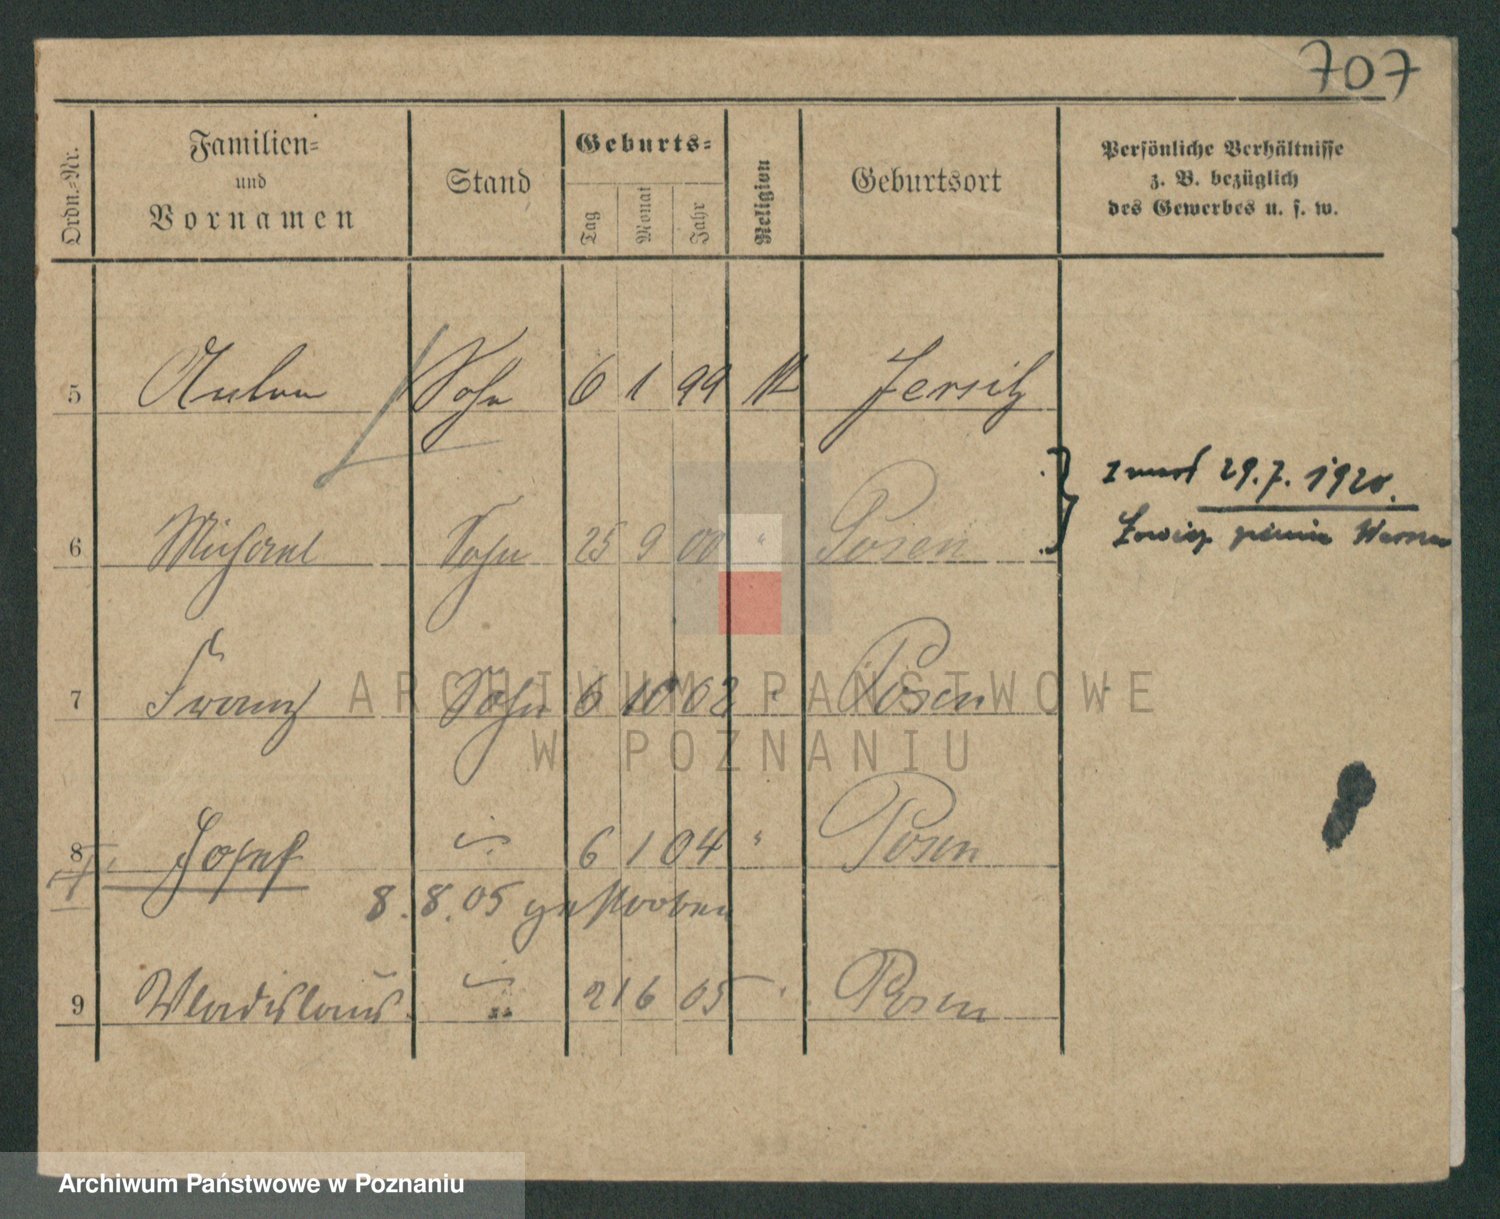 707
Ordn.-Nr.
Familien-
und
Vornamen
Stand
Geburts-
Tag
Monat
Jahr
Religion
Geburtsort
Persönliche Verhältnisse
z. B. bezüglich
des Gewerbes u. s. w.
5 Anton Sohn 6 1 99 Jersitz
29.7. 1920.
6 Michael Sohn 25 9 00 " Posen
7 Franz Sohn 6 10 02 " Posen
8 Josef 6 1 04 " Posen
8. 8. 05 gestorben
9 Wladislaus 21 6 05 " Posen
ARCHIWUM PAŃSTWOWE
W POZNANIU
Archiwum Państwowe w Poznaniu